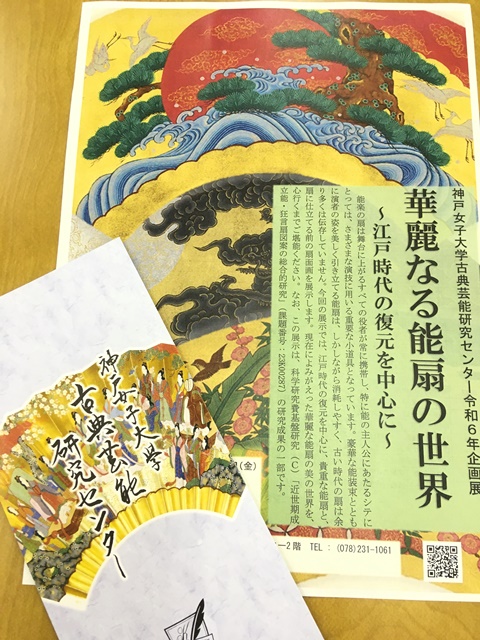 神戸女子大学古典芸能研究センター令和６年企画展
華麗なる能扇の世界
～江戸時代の復元を中心に～
能楽の扇は舞台に上がるすべての役者が常に携帯し、特に能の主人公にあたるシテに
とっては、さまざまな演技に用いる重要な小道具となっています。豪華な能装束ととも
に演者の姿を美しく引き立てる能扇は、しかしながら消耗しやすく、古い時代の扇は余
り多くは伝存していません。今回の展示では、江戸時代の復元を中心に、貴重な能扇と、
扇に仕立てる前の扇面画を展示します。現在によみがえった華麗な能扇の美の世界を、
心行くまでご堪能ください。なお、この展示は、科学研究費基盤研究（C）「近世期成
立能・狂言扇図案の総合的研究」（課題番号：23K00287）の研究成果の一部です。
(金)
ー２階 TEL：(078)231-1061
神戸女子大學
古典芸能
研究センター